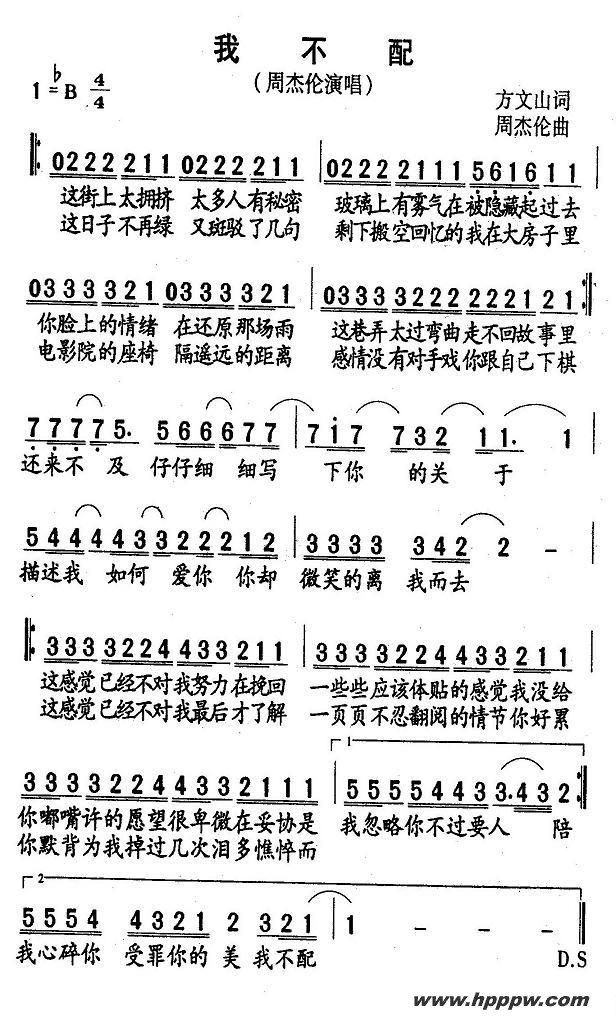 我 不 配
(周杰伦演唱)
1=♭B 4/4
方文山词
周杰伦曲
0222211 0222211 | 02222111 561611
这街上太拥挤 太多人有秘密 玻璃上有雾气在被隐藏起过去
这日子不再绿 又斑驳了几句 剩下搬空回忆的我在大房子里
0333321 0333321 | 0333322222221 21
你脸上的情绪 在还原那场雨 这巷弄太过弯曲走不回故事里
电影院的座椅 隔遥远的距离 感情没有对手戏你跟自己下棋
77775. 566677 | 717 732 11. 1
还来不 及 仔仔细 细写 下你 的关 于
544443322212 | 3333 342 2 -
描述我 如何 爱你 你却 微笑的离 我而去
3333224433211 | 3333224433211
这感觉已经不对我努力在挽回 一些些应该体贴的感觉我没给
这感觉已经不对我最后才了解 一页页不忍翻阅的情节你好累
1
33332244332111 | 555554433.432
你嘟嘴许的愿望很卑微在妥协是 我忽略你不过要人 陪
你默背为我掉过几次泪多憔悴而
2
5554 4321 2 321 | 1 -
我心碎你 受罪你的 美 我不配 D.S
www.hpppw.com